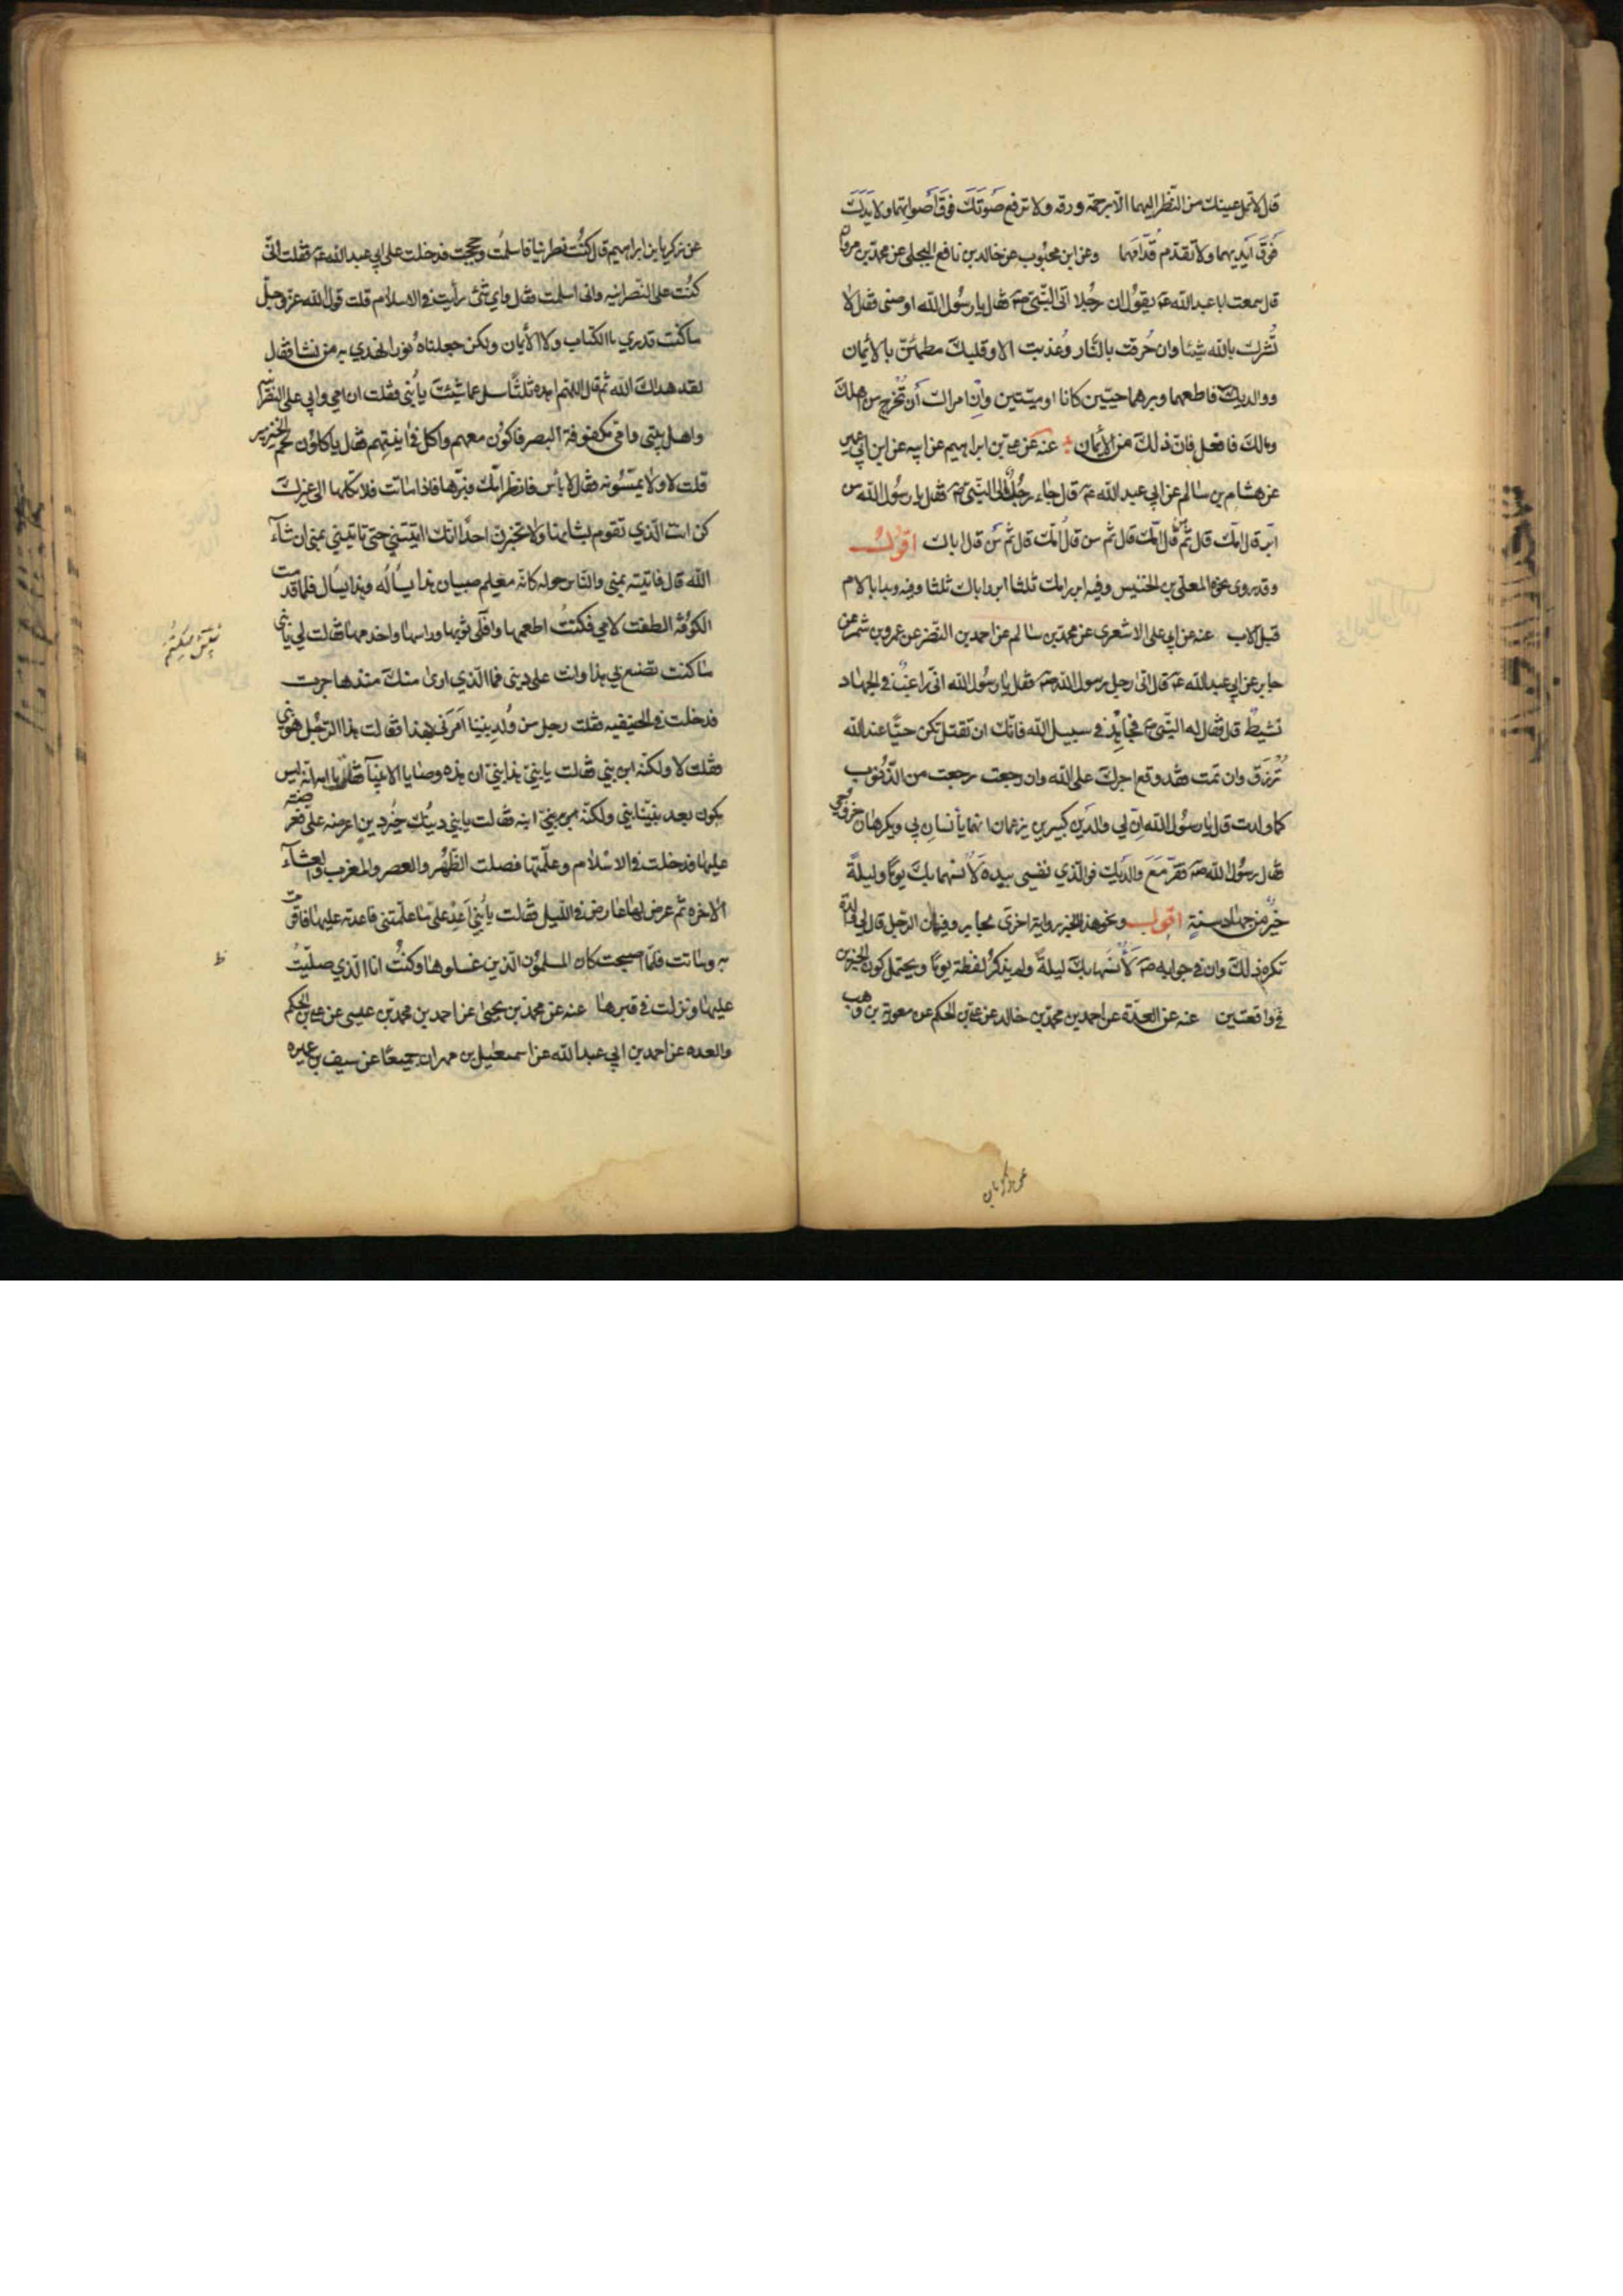 قال لا تمل عينيك من النظر اليهما الا برحمة ورقه ولا ترفع صوتك فوق أصواتهما ولا يدك
فوق ايديهما ولا تقدّم قُدّامهما وعن ابن محبوب عن خالد بن نافع البجلى عن محمد بن مروان
قال سمعت ابا عبد الله عه يقول ان رجُلا اتى النّبىّ صه فقال يا رسُول الله اوصنى فقال لا
تُشرك بالله شيئا وان حُرقت بالنّار وعُذبت الا وقلبك مطمئنّ بالأيمان
ووالديك فاطعهما وبرهما حيّين كانا او ميّتين وانِ امراك أن تخرج من اهلك
ومالك فافعل فانّ ذلك من الأيمان عنه عن على بن ابراهيم عن ابيه عن ابن ابى عمير
عن هشام بن سالم عن ابى عبد الله عه قال جاء رجُل الى النّبىّ صه فقال يا رسُول الله من
ابرّ قال امّك قال ثمّ من قال امّك قال ثم من قال امّك قال ثم من قال اباك اقول
وقد روى نحوه المعلى بن الخنيس وفيه ابرر امك ثلثا ابرر اباك ثلثا وفيه وبدا بالام
قبل الاب عنه عن ابى على الاشعرى عن محمد بن سالم عن احمد بن النّضر عن عمرو بن شمر عن
جابر عن ابى عبد الله عه قال اتى رجل رسول الله صه فقال يا رسُول الله انى راغب فى الجهاد
نشيطٌ قال فقال له النّبى ع فجاهِد فى سبيل الله فانّك ان تقتل تكن حيًّا عند الله
تُرزق وان تمت فقد وقع اجرك على الله وان رجعت رجعت من الذّنوب
كما ولدت قال يا رسُول الله انّ لى والدين كبيرين يزعمان انهما يأنسان بى ويكرهان خروجى
فقال رسُول الله صه فقرّ مع والديك فوالّذي نفسى بيده لأنسهما بك يومًا وليلةً
خيرٌ من جهاد سنةٍ اقول ونحو هذا الخبر رواية اخرى لجابر وفيها ان الرّجل قال لى والدة
تكره ذلك وان فى جوابه صه لأنسها بك ليلةً ولم يذكر لفظة يومًا ويحتمل كون الخبرين
فى واقعتين عنه عن العدّة عن احمد بن محمد بن خالد عن على بن الحكم عن معوية بن وهب
عن زكريا بن ابراهيم قال كنُت نصرانيا فاسلمُت وحججت فدخلت على ابى عبد الله عه فقلت انى
كنُت على النّصرانيه وانى اسلمت فقال واى شئ رأيت فى الاسلام قلت قول الله عزّ وجلّ
ما كنت تدري ما الكتاب ولا الأيمان ولكن جعلناهُ نورا نهدي به من نشا فقال
لقد هداك الله ثم قال اللّهم اهده ثلثًا سل عما شئت يا بُنى فقلت ان امى وابى على النصرانيّة
واهل بيتى وامى مكفوفة البصر فاكون معهم واكل فى انيتهم فقال ياكلون لحم الخنزير
قلت لا ولا يمسّونه فقال لا بأس فانظر امّك فبرّها فاذا ماتت فلا تكلها الى غيرك
كن انت الّذي تقوم بشانها ولا تخبرن احدًا انك اتيتنى حتى تاتينى بمنى ان شاء
الله قال فاتيته بمنى والنّاس حوله كانّه معلم صبيان هذا يسأله وهذا يسأل فلما قدمت
الكوفة الطفت لامى فكنُت اطعمها وافلى ثوبها وراسها واخدمها فقالت لى يا بنى
ما كنت تصنع بى هذا وانت على دينى فما الّذي ارى منك منذ هاجرت
فدخلت فى الحنيفيه فقلت رجل من وُلد نبينا امرنى بهذا فقالت هذا الرّجُل هو نبى
فقلت لا ولكنّه ابن نبى فقالت يا بنىّ هذا نبىّ ان هذه وصايا الانبيآ فقلت يا امه انّه ليس
يكون بعد نبيّنا نبى ولكنّه ابن نبىّ فقالت يا بنى دينُك خير دين اعرضه علىّ فعرضته
عليها فدخلت فى الاسلام وعلّمتها فصلت الظّهُر والعصر والمغرب والعشآء
الاخره ثم عرض لها عارض فى اللّيل فقالت يا بُنى أعِدْ علىّ ما علّمتنى فاعدته عليها فاقرت
به وماتت فلمّا اصبحت كان المسلمون الّذين غسلوها وكنتُ انا الّذي صلّيتُ
عليها ونزلت فى قبرها عنه عن محمد بن يحيى عن احمد بن محمد بن عيسى عن على بن الحكم
والعده عن احمد بن ابى عبد الله عن اسمعيل بن مهران جميعًا عن سيف بن عميره
ظ
عن زكريا بن